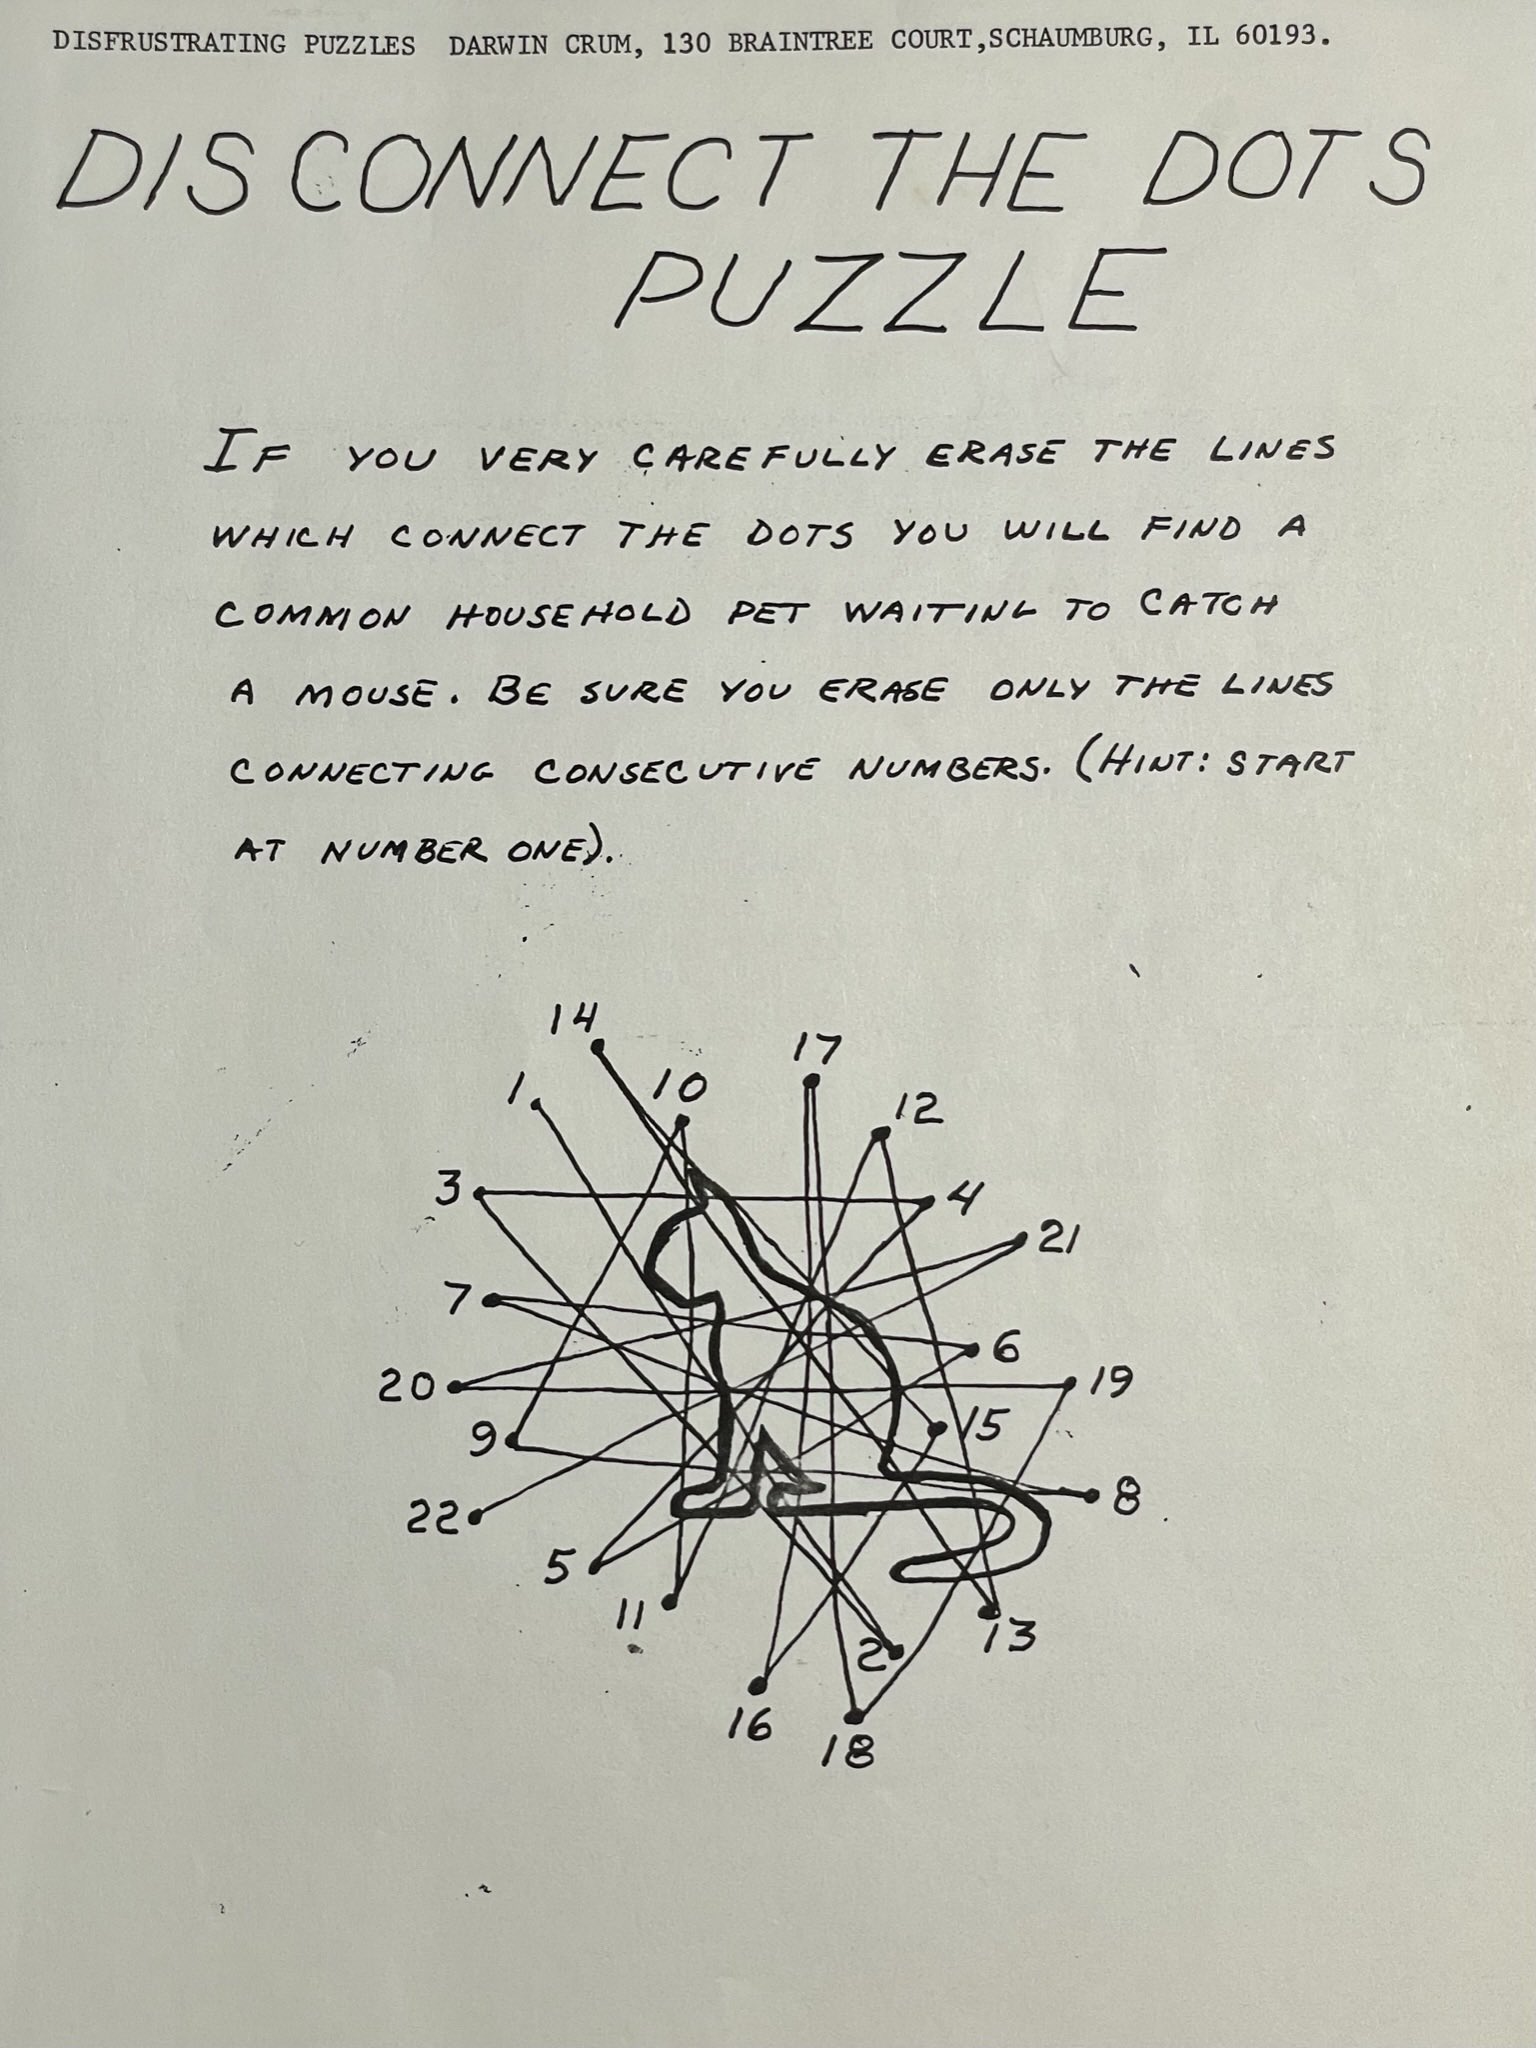 DISFRUSTRATING PUZZLES DARWIN CRUM, 130 BRAINTREE COURT,SCHAUMBURG, IL 60193.
DISCONNECT THE DOTS
PUZZLE
IF YOU VERY CAREFULLY ERASE THE LINES
WHICH CONNECT THE DOTS YOU WILL FIND A
COMMON HOUSEHOLD PET WAITING TO CATCH
A MOUSE. BE SURE YOU ERASE ONLY THE LINES
CONNECTING CONSECUTIVE NUMBERS. (HINT: START
AT NUMBER ONE).
14
17
1
10
12
3
4
21
7
6
20
19
9
15
22
8
5
11
2
13
16
18